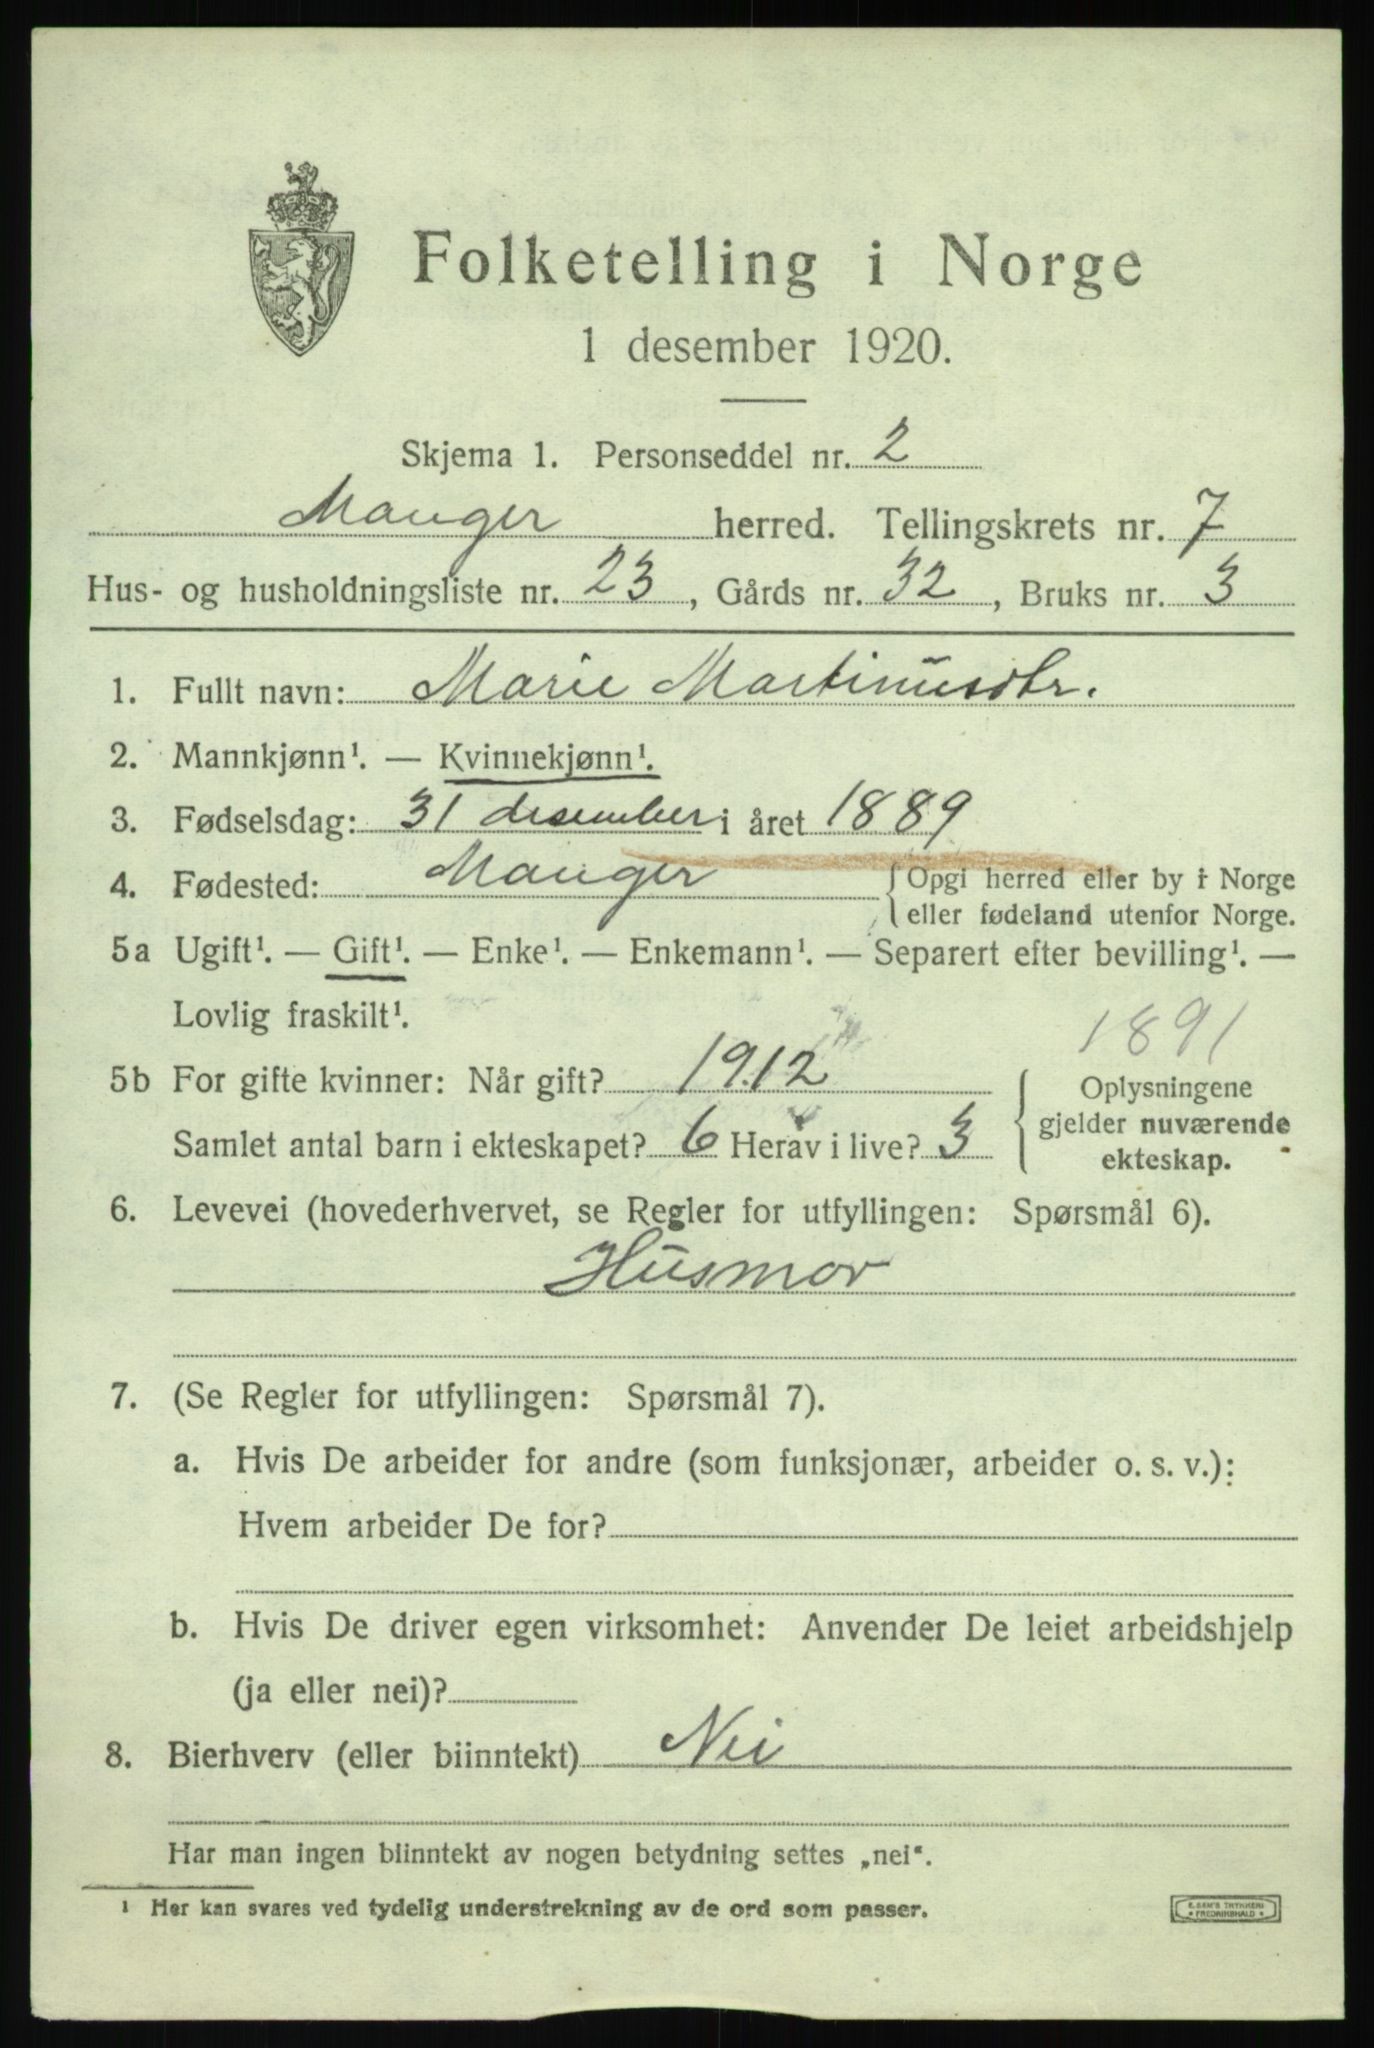 Folketelling i Norge
1 desember 1920.
Skjema 1. Personseddel nr. 2
Manger herred. Tellingskrets nr. 7
Hus- og husholdningsliste nr. 23, Gårds nr. 32, Bruks nr. 3
1. Fullt navn: Marie Martinusdtr.
2. Mannkjønn¹. — Kvinnekjønn¹.
3. Fødselsdag: 31 desember i året 1889
4. Fødested: Manger {Opgi herred eller by i Norge
eller fødeland utenfor Norge.
5a Ugift¹. — Gift¹. — Enke¹. — Enkemann¹. — Separert efter bevilling¹. —
Lovlig fraskilt¹.
1891
5b For gifte kvinner: Når gift? 1912 { Oplysningene
gjelder nuværende
ekteskap.
Samlet antal barn i ekteskapet? 6 Herav i live? 3
6. Levevei (hovederhvervet, se Regler for utfyllingen: Spørsmål 6).
Husmor
7. (Se Regler for utfyllingen: Spørsmål 7).
a. Hvis De arbeider for andre (som funksjonær, arbeider o. s. v.):
Hvem arbeider De for?
b. Hvis De driver egen virksomhet: Anvender De leiet arbeidshjelp
(ja eller nei)?
8. Bierhverv (eller biinntekt) Nei
Har man ingen biinntekt av nogen betydning settes „nei“.
¹ Her kan svares ved tydelig understrekning av de ord som passer.
E. SEM'S TRYKKERI
* FREDRIKSHALD *